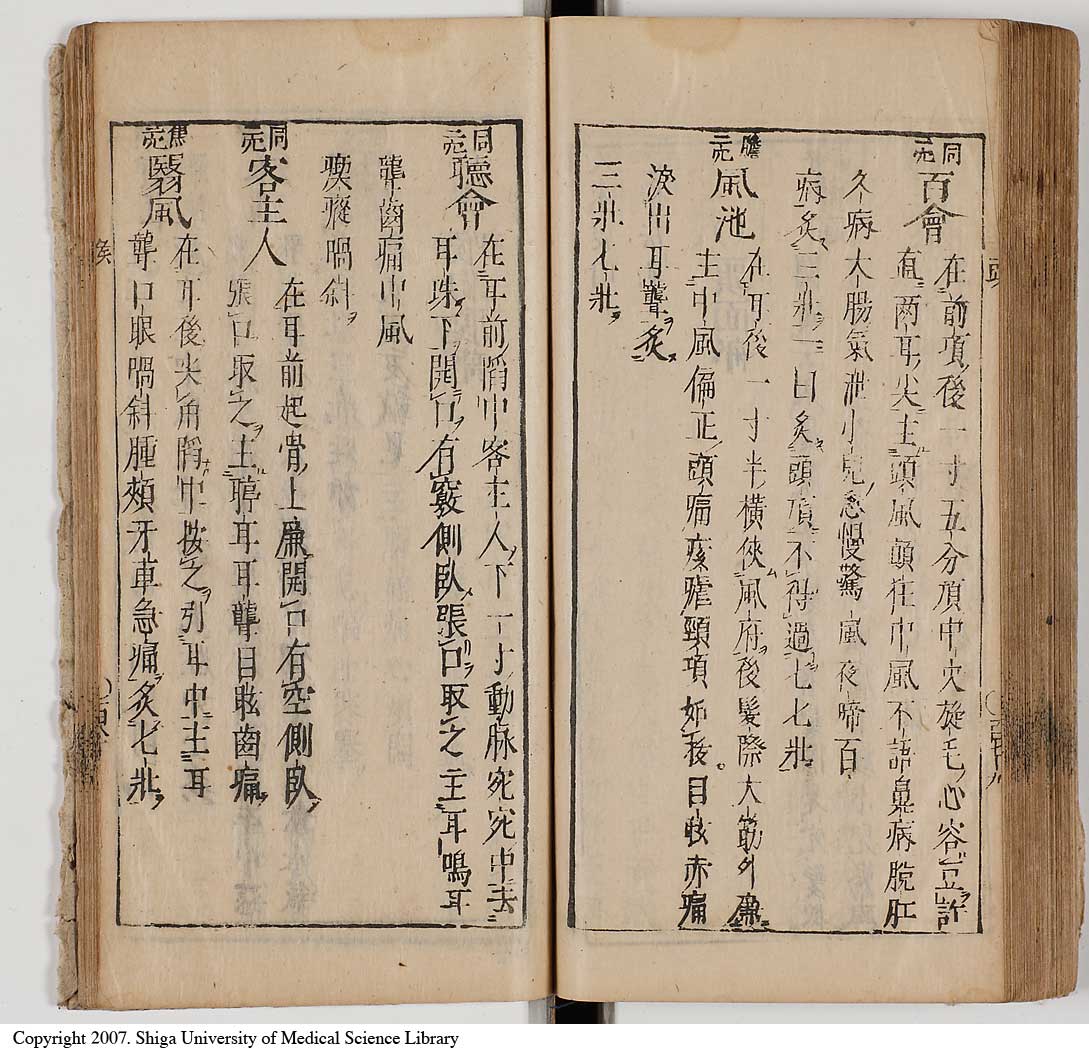 百會
在前項後一寸五分頂中央旋毛心容豆許
直兩耳尖主頭風顛狂中風不語鼻病脫肛
久病大腸氣泄小兒急慢驚風夜啼百
病灸三壯一曰灸頭頂不得過七七壯
膽
風池
在耳後一寸半橫俠風府後髮際大筋外廉
主中風偏正頭痛痎瘧頸項如拔目眩赤痛
淚出耳聾灸
三壯七壯
同
聽會
在耳前陷中客主人下一寸動脉宛宛中去
耳珠下開口有竅側臥張口取之主耳鳴耳
聾齒痛中風
瘈瘲喎斜
同
客主人
在耳前起骨上廉開口有空側臥
張口取之主聤耳耳聾目眩齒痛
焦
翳風
在耳後尖角陷中按之引耳中主耳
聾口眼喎斜腫頰牙車急痛灸七壯
Copyright 2007. Shiga University of Medical Science Library